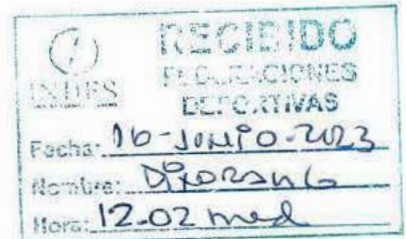 INDES
RECIBIDO
FEDERACIONES
DEPORTIVAS
Fecha: 16-JUNIO-2023
Nombre:
Hora: 12.02 md